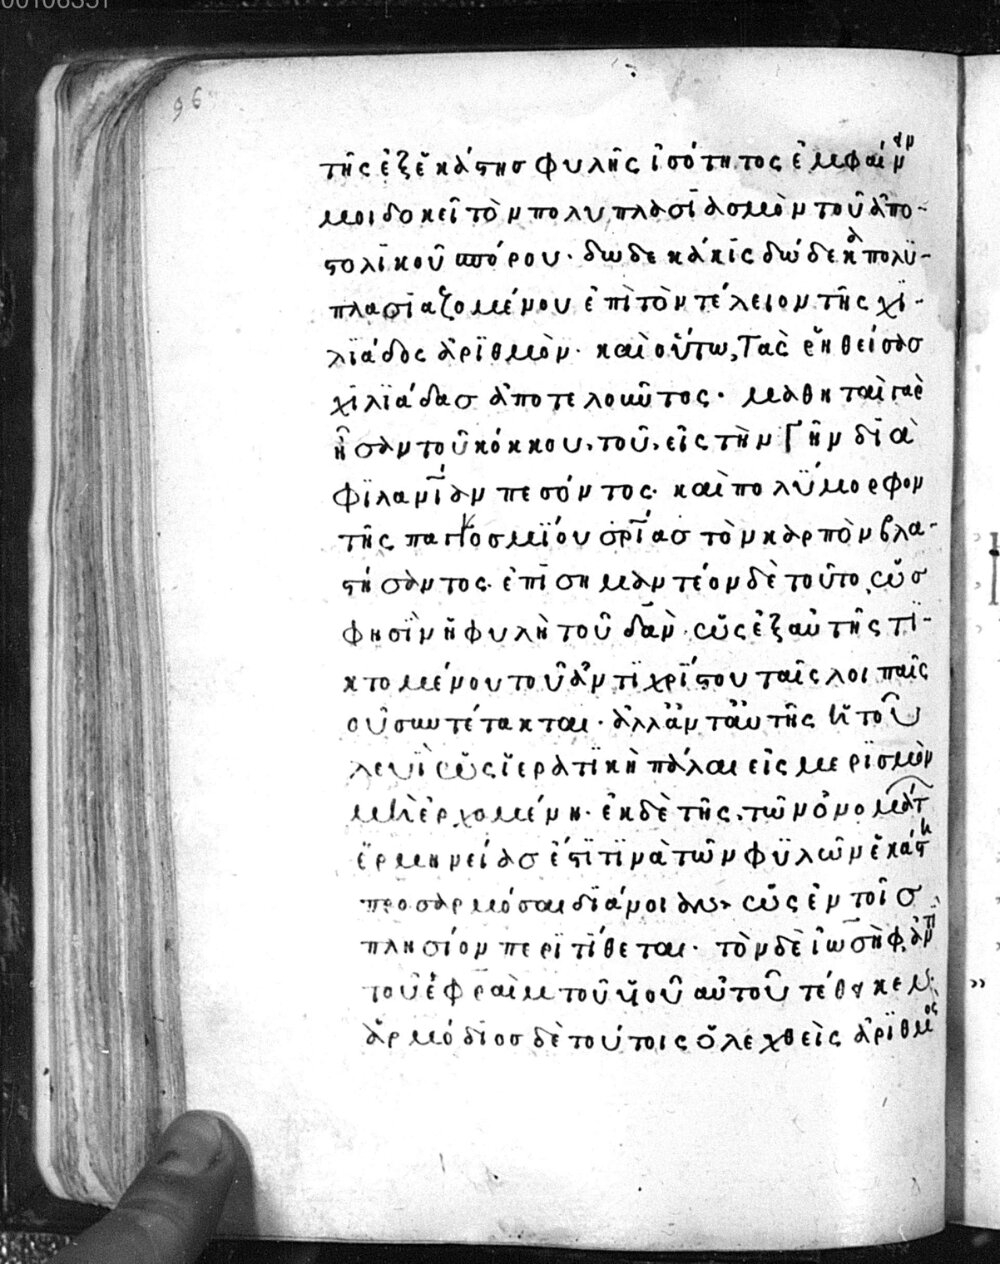 00106351
96
τῆς ἐξ ἑκάστης φυλῆς ἰσότητος ἐμφαίν
μοι δοκεῖ τὸν πολυπλασιασμὸν τοῦ ἀπο-
στολικοῦ σπόρου· δωδεκάκις δώδεκα πολυ-
πλασιαζομένου ἐπὶ τὸν τέλειον τῆς χι-
λιάδος ἀριθμὸν· καὶ οὕτω, τὰς ῥηθείσας
χιλιάδας ἀποτελοῦντος· μαθηταὶ γὰρ
ἦσαν τοῦ κόκκου, τοῦ, εἰς τὴν γῆν διὰ
φιλανίαν πεσόντος· καὶ πολύμορφον
τῆς παγκοσμίου σρίας τὸν καρπὸν βλα-
στήσαντος· ἐπισημαντέον δὲ τοῦτο, ὡς
φησὶν ἡ φυλὴ τοῦ δαν· ὡς ἐξ αὐτῆς τι-
κτομένου τοῦ ἀντιχρίστου ταῖς λοιπαῖς
οὐ συντέτακται· ἀλλ' ἀντ' αὐτῆς ἡ τοῦ
λευὶ ὡς ἱερατικὴ πάλαι εἰς μερισμὸν
μὴ ἐρχομένη· ἐκ δὲ τῆς, τῶν ὀνομάτ
ἑρμηνείας ἔστι τινὰ τῶν φυλῶν ἑκάστ
προσαρμόσαι διάνοιαν· ὡς ἐν τοῖς
πλησίον περιτίθεται· τὸν δὲ ἰωσὴφ, ἀντὶ
τοῦ ἐφραὶμ τοῦ υἱοῦ αὐτοῦ τέθεικεν·
ἁρμόδιος δὲ τούτοις ὁ λεχθεὶς ἀριθμὸς